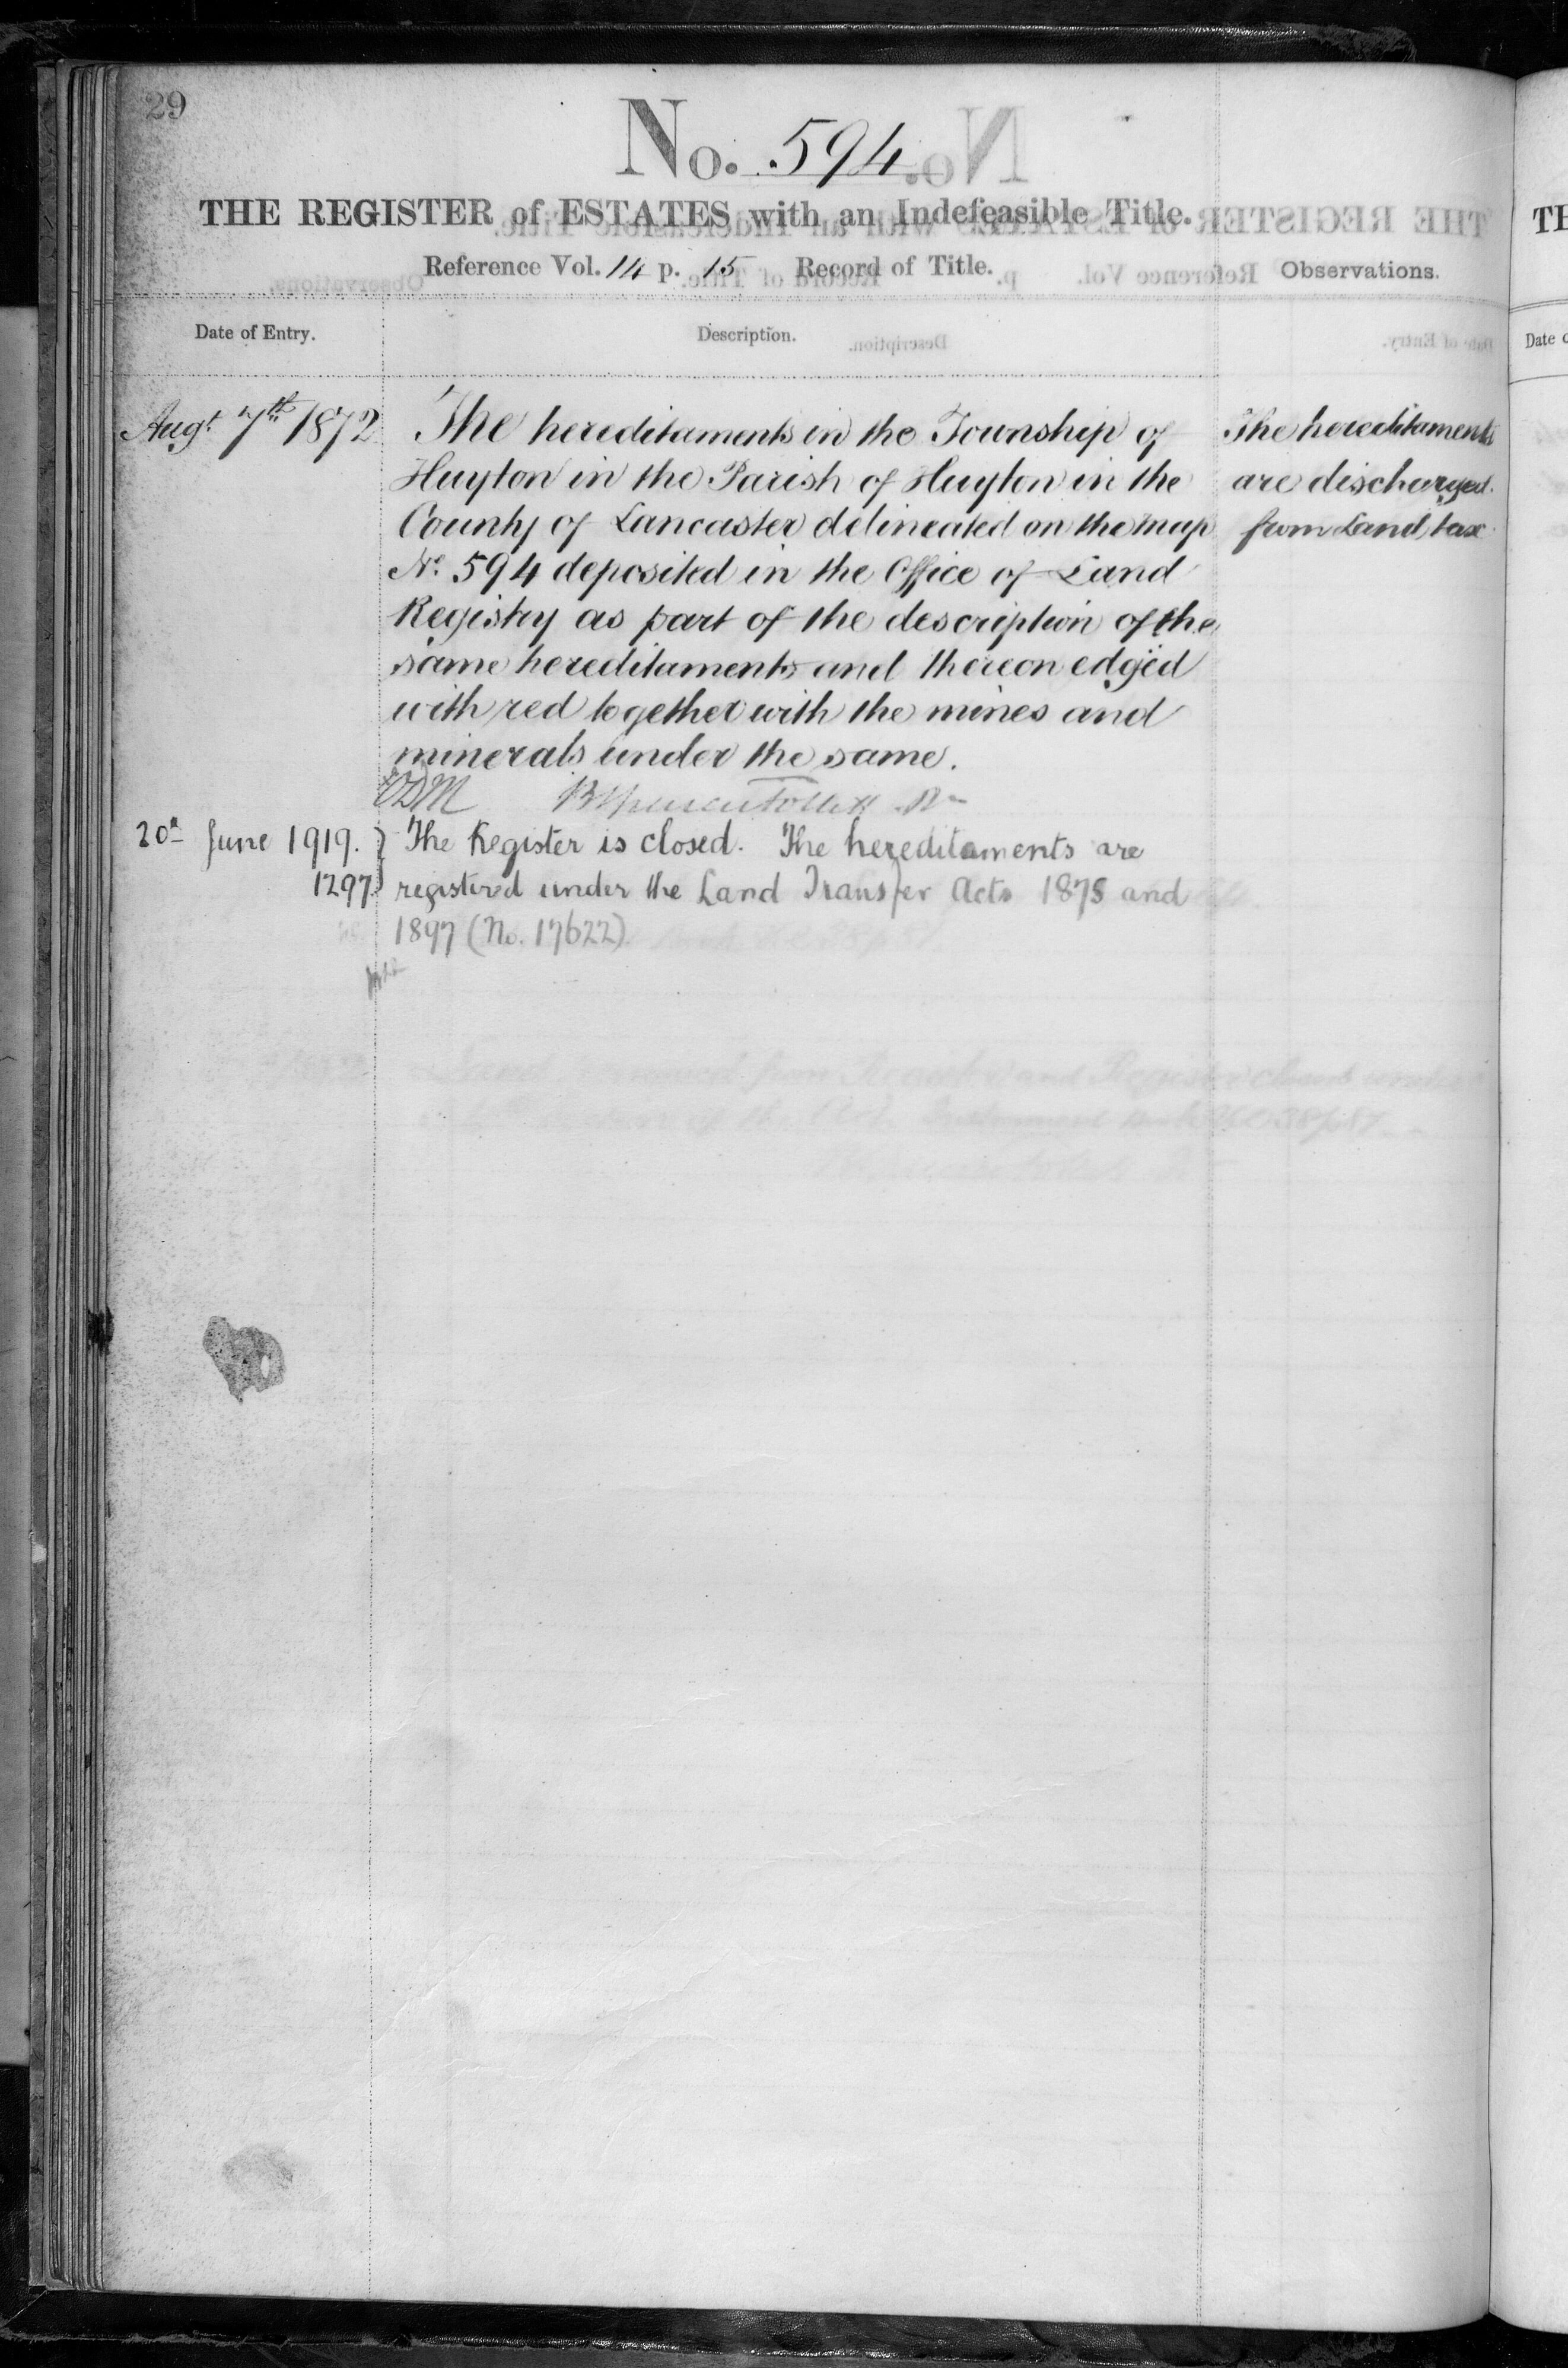 29
No. 594.
THE REGISTER of ESTATES with an Indefeasible Title.
Reference Vol. 14 p. 15 Record of Title.
Observations.
Date of Entry.
Description.
Augt. 7th 1872
The hereditaments in the Township of
Huyton in the Parish of Huyton in the
County of Lancaster delineated on the map
No. 594 deposited in the Office of Land
Registry as part of the description of the
same hereditaments and thereon edged
with red together with the mines and
minerals under the same.
The hereditaments
are discharged
from Land tax
20th June 1919.
1297
The Register is closed. The hereditaments are
registered under the Land Transfer Acts 1875 and
1897 (No. 17622)
TH
Date o